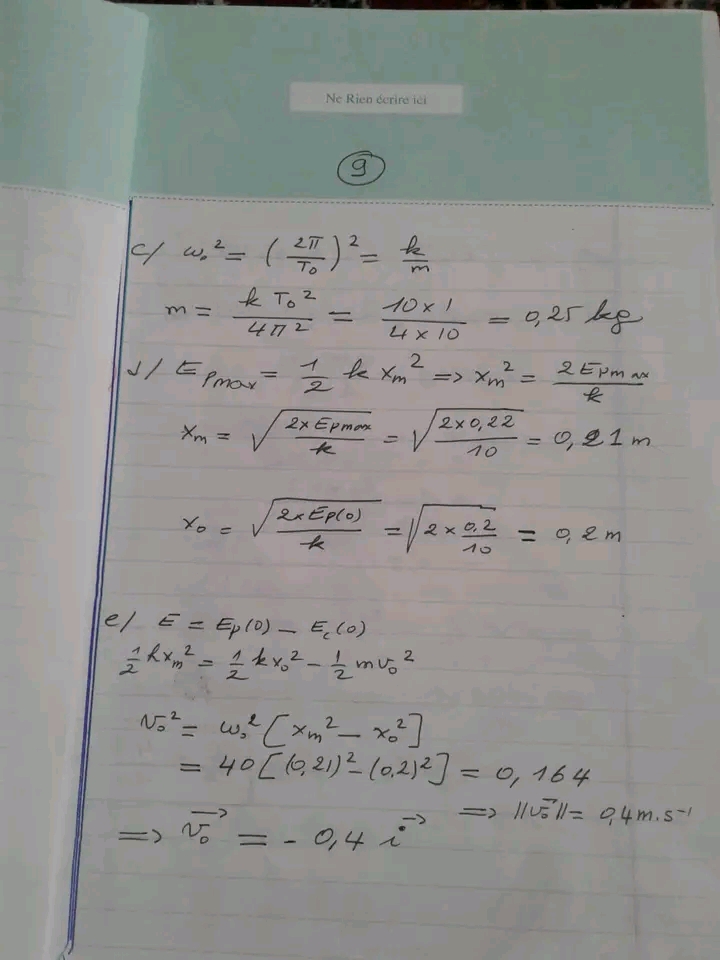 Ne Rien écrire ici
9
c/ ω₀² = (2π/T₀)² = k/m
m = k T₀²/4π² = 10 × 1/4 × 10 = 0,25 kg
d/ Epmax = 1/2 k xm² => xm² = 2 Epmax/k
xm = √(2 x Epmax/k) = √(2 x 0,22/10) = 0,21 m
x₀ = √(2 x Ep(0)/k) = √(2 x 0,2/10) = 0,2 m
e/ E = Ep(0) - Ec(0)
1/2 k xm² = 1/2 k x₀² - 1/2 m v₀²
v₀² = ω₀² [xm² - x₀²]
= 40 [(0,21)² - (0,2)²] = 0,164
=> ||v₀⃗|| = 0,4 m.s⁻¹
=> v₀⃗ = - 0,4 i⃗